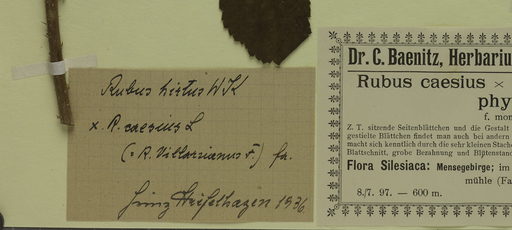 Rubus hirtus WK
x R. caesius L
(= R. Villarsianus F.) fa.
1936.
Dr. C. Baenitz, Herbariu
Rubus caesius ×
phy
f. mon
Z. T. sitzende Seitenblättchen und die Gestalt
gestielte Blättchen findet man auch bei andern
macht sich kenntlich durch die sehr kleinen Stach
Blattschnitt, grobe Bezahnung und Blütenstand
Flora Silesiaca: Mensegebirge; im
mühle (Fa
8./7. 97. — 600 m.